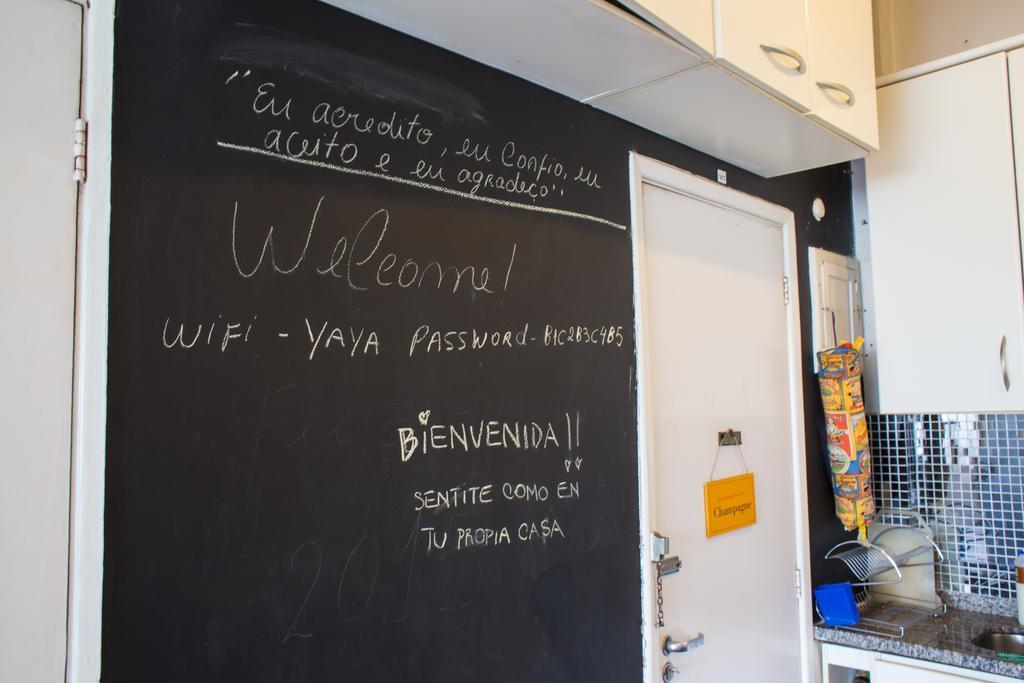 "Eu acredito, eu confio, eu
aceito e eu agradeço"
Welcome!
WiFi - YAYA PASSWORD - B1C2B3C4B5
BiENVENIDA!!
SENTITE COMO EN
TU PROPIA CASA
2015
Champagne